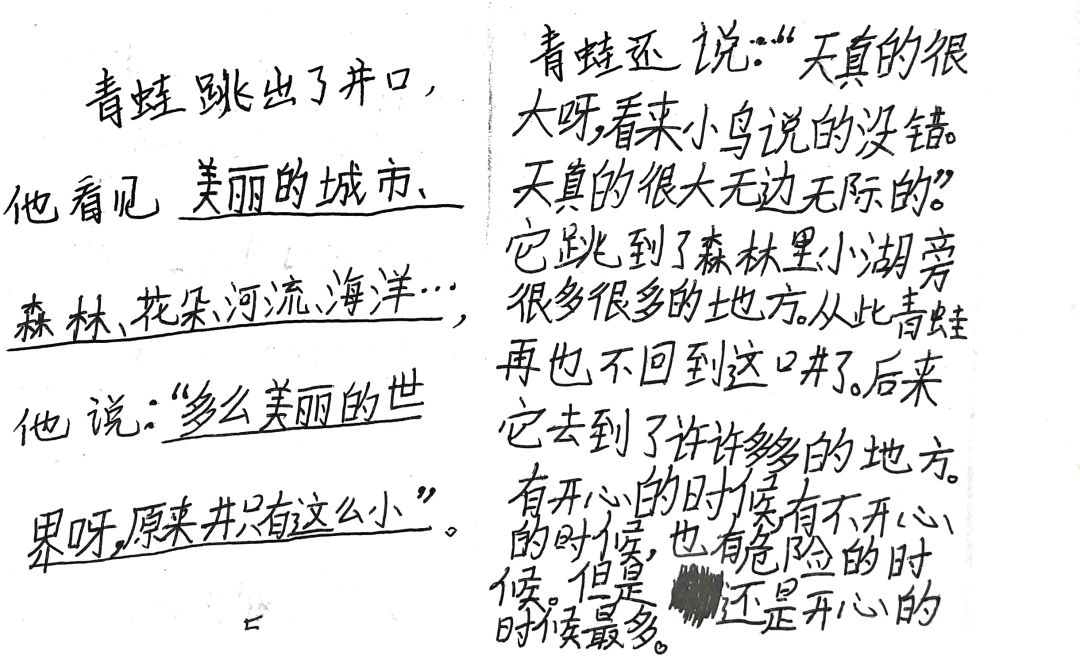 青蛙跳出了井口，
他看见 美丽的城市、
森林、花朵、河流、海洋…，
他说：“多么美丽的世
界呀，原来井只有这么小”。
青蛙还说：“天真的很
大呀，看来小鸟说的没错。
天真的很大无边无际的。”
它跳到了森林里小湖旁
很多很多的地方。从此青蛙
再也不回到这口井了。后来
它去到了许许多多的地方。
有开心的时候，有不开心
的时候，也有危险的时
候。但是 还是开心的
时候最多。